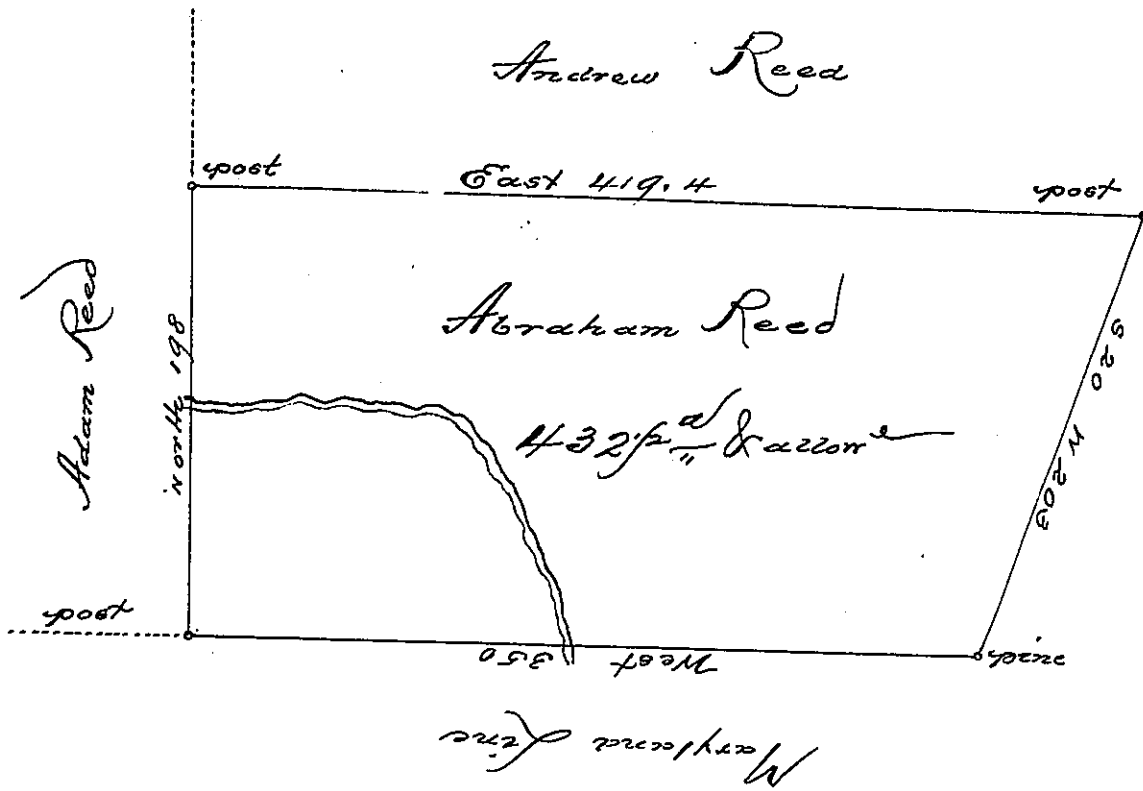 Andrew Reed
post
East 419.4
post
Adam Reed
North 198
Abraham Reed
432 1/2 a & allow e
S 20 W 203
post
West 350
pine
Maryland Line